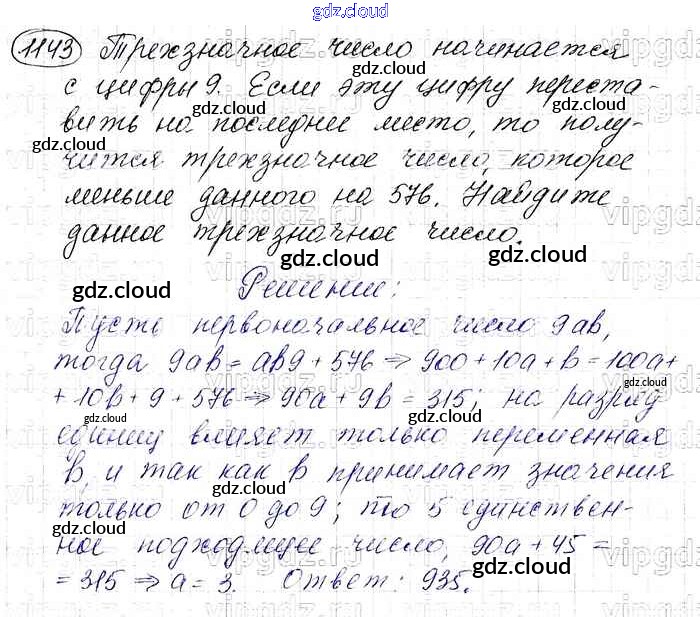 gdz.cloud
1143 Трехзначное число начинается
gdz.cloud
с цифры 9. Если эту цифру переста-
gdz.cloud
вить на последнее место, то полу-
gdz.cloud
чится трехзначное число, которое
gdz.cloud
меньше данного на 576. Найдите
gdz.cloud
данное трехзначное число.
gdz.cloud
gdz.cloud
Решение:
Пусть первоначальное число 9ab,
gdz.cloud
тогда 9ab = ab9 + 576 ⇒ 900 + 10a + b = 100a +
gdz.cloud
+ 10b + 9 + 576 ⇒ 90a + 9b = 315; на разряд
gdz.cloud
единиц влияет только переменная
gdz.cloud
b, и так как b принимает значения
gdz.cloud
только от 0 до 9; то 5 единствен-
gdz.cloud
ное подходящее число, 90a + 45 =
gdz.cloud
= 315 ⇒ a = 3. Ответ: 935.
gdz.cloud